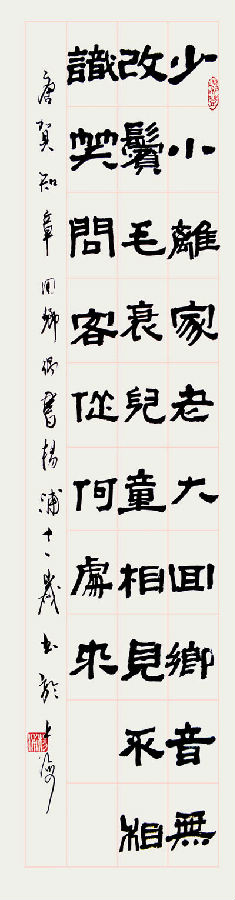 少小離家老大回鄉音無
改鬢毛衰兒童相見不相
識笑問客從何處來
唐賀知章回鄉偶書楊浦十一歲书於上海